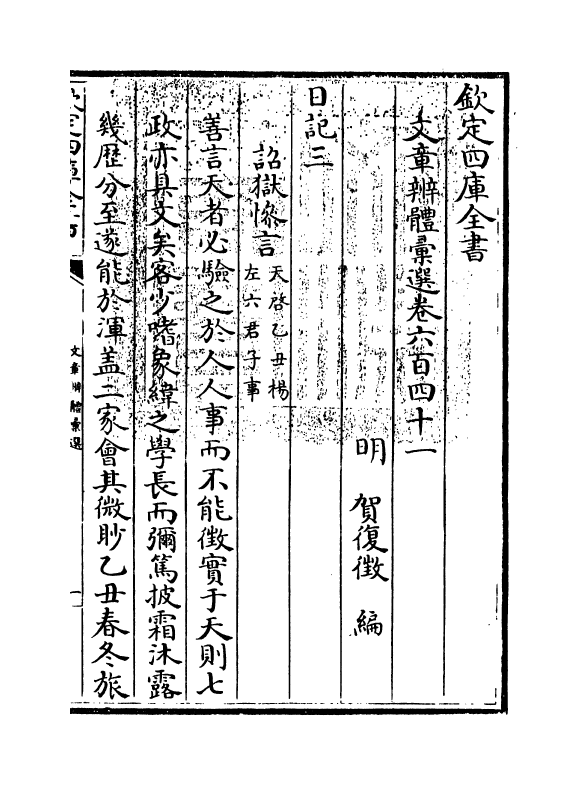 欽定四庫全書
文章辨體彙選卷六百四十一
明 賀復徵 編
日記三
詔獄慘言天啓乙丑楊
左六君子事
善言天者必驗之於人人事而不能徵實于天則七
政亦具文矣客少嗜象緯之學長而彌篤披霜沐露
幾歷分至遂能於渾蓋二家會其微眇乙丑春冬旅
欽定四庫全書
文章辨體彙選
一